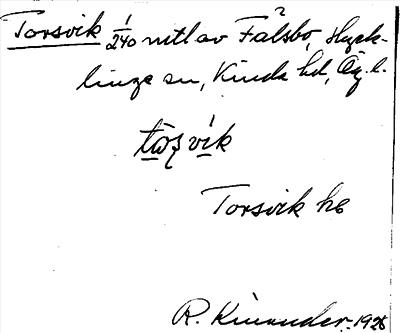 Torsvik 1/240 mtl av Fålsbo, Hyck-
linge sn, Kinda hd, Ög. l.
Torsvik hc
R. Kinander 1926